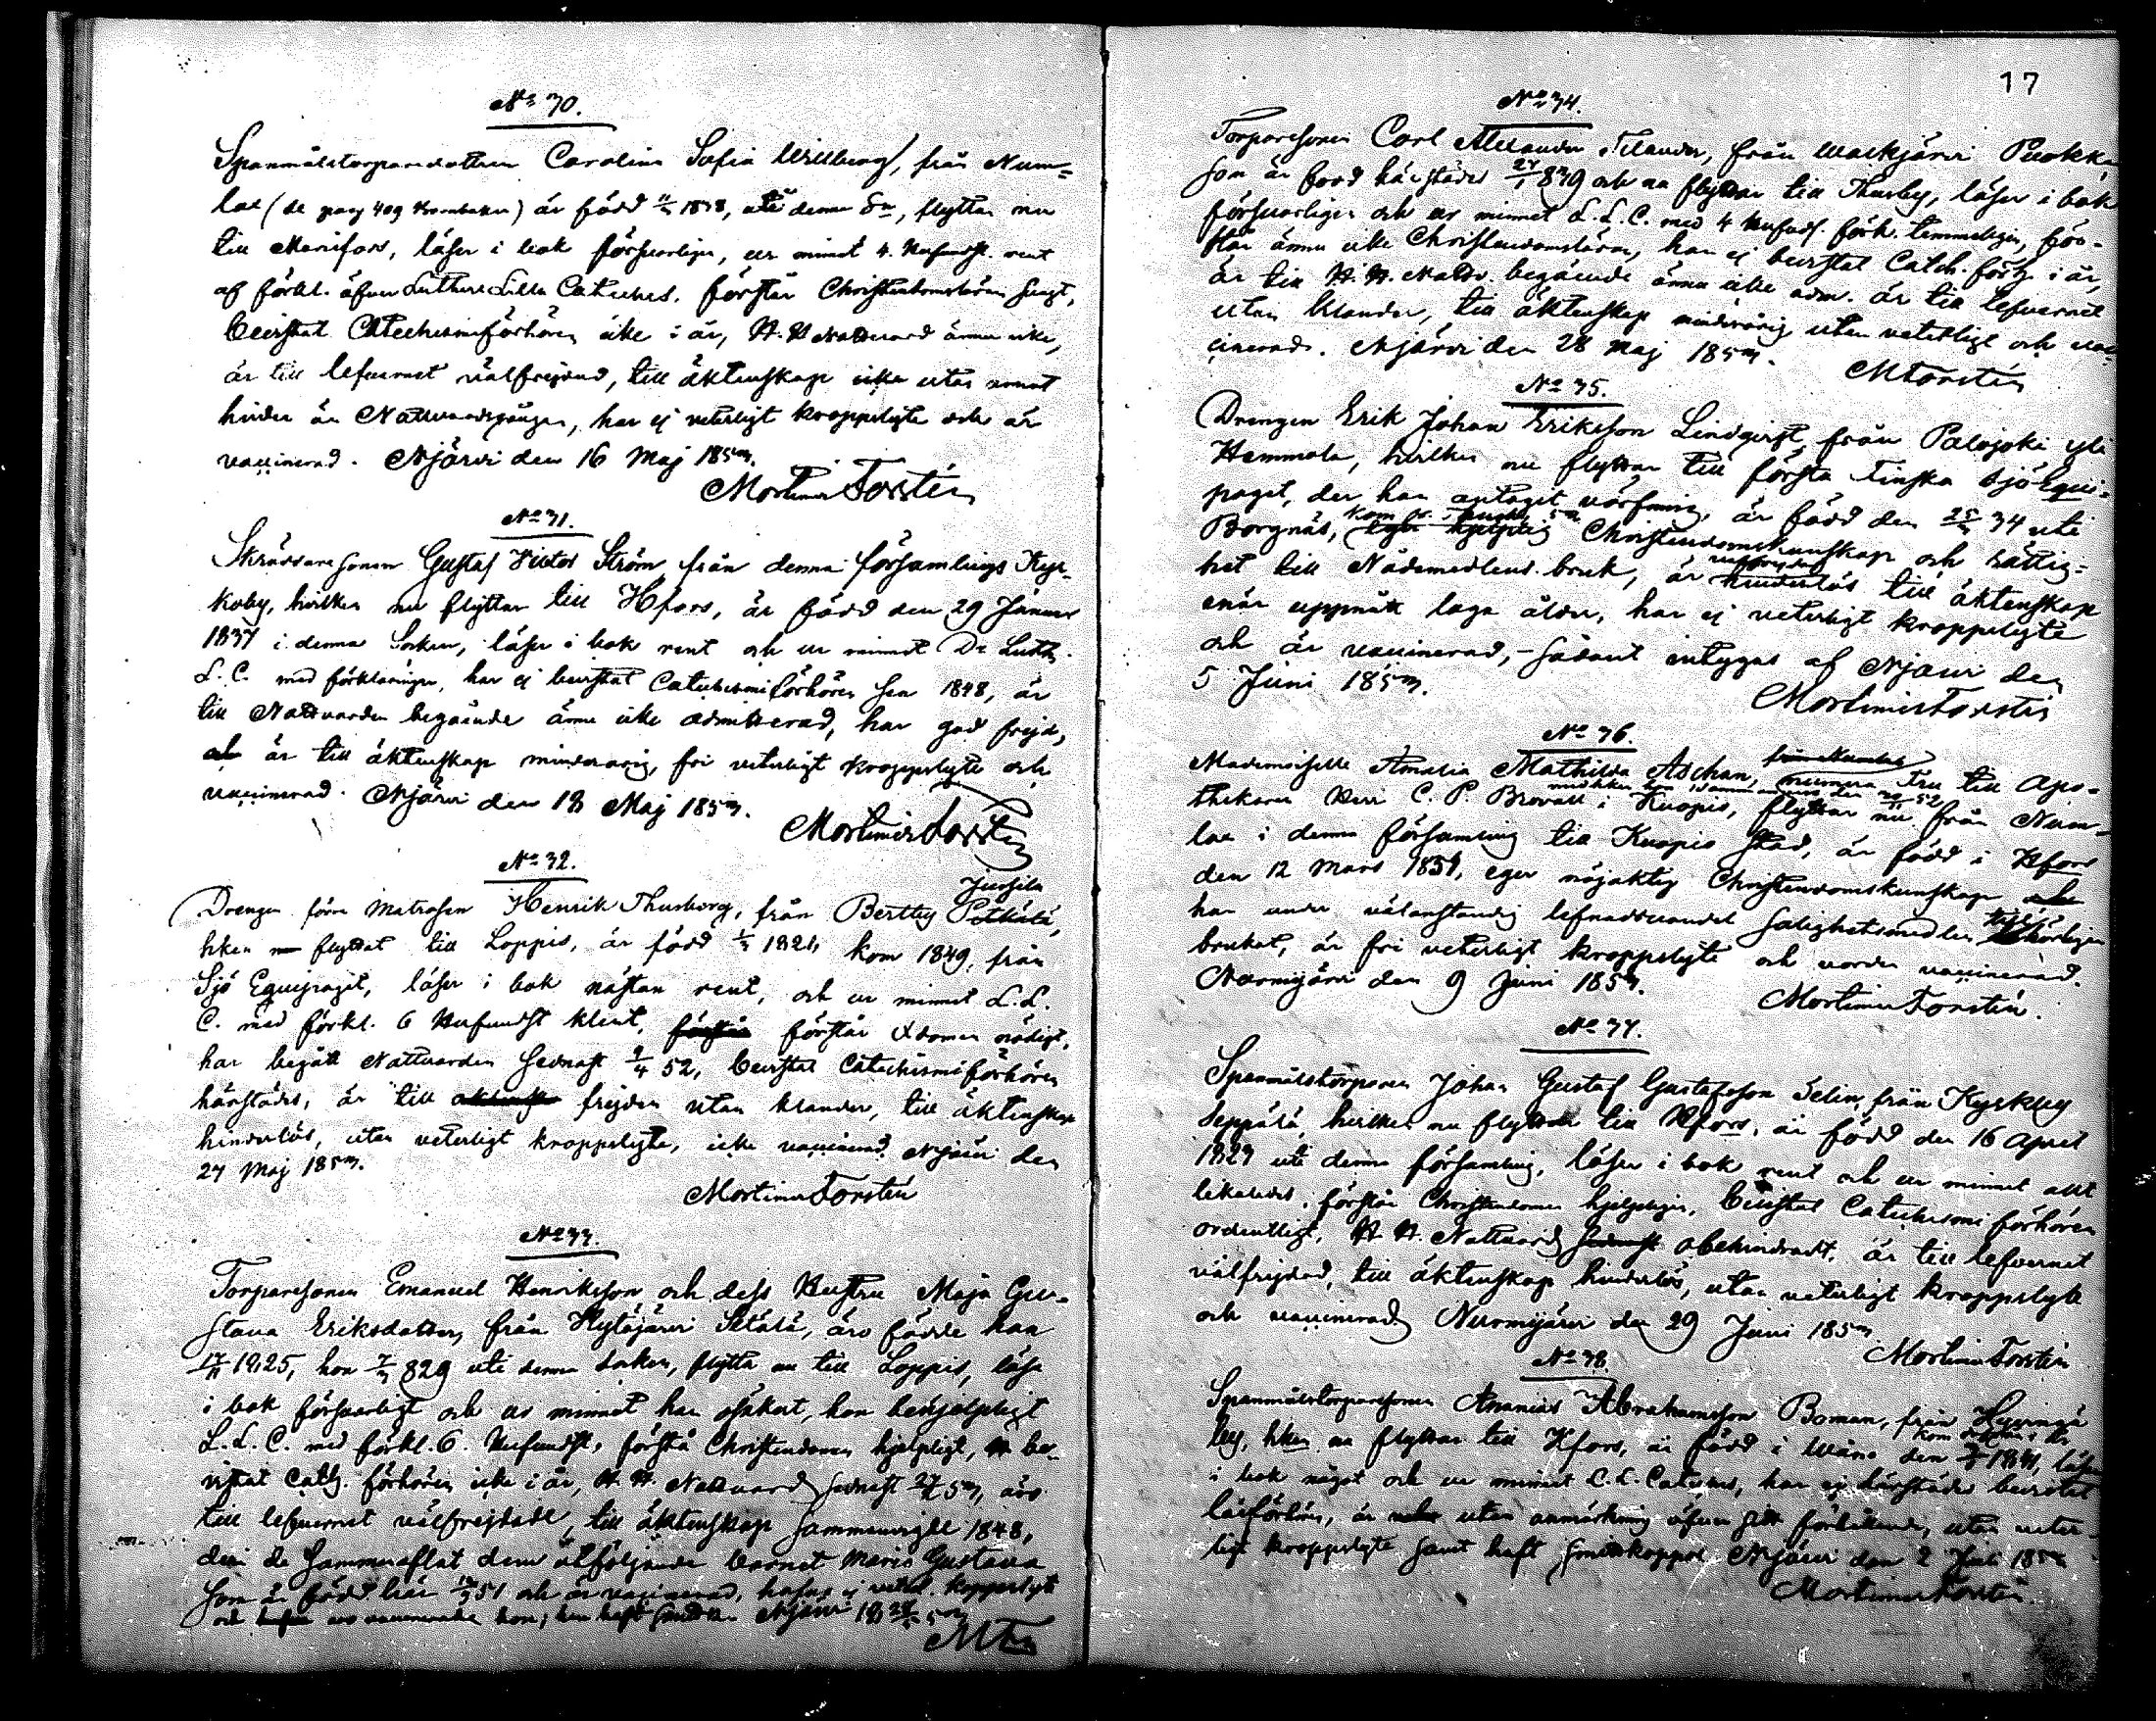 No 30.
Spanmålstorparedottren Carolina Sofia Willberg, från Num=
lax (de pag 409 Kornbacka) är född 1838, uti denna Sn, flyttar nu
till Mariefors, läser i bok försvarligen, ur minnet 4. Hufvudst. rent
af förkl. äfven Luthers Lilla Cateches. förstår Christendomsläran svagt,
bevistat Catechismiförhören icke i år, H. H. Nattvard ännu icke,
är till lefvernet välfrejdad, till äktenskap icke utan annat
hinder än Nattvardsgången, har ej veterligt kroppslyte och är
vaccinerad. Njärvi den 16 Maj 1853.
Mortimer Forstén
No 31.
Skräddaresonen Gustaf Victor Ström från denna församlings Kyr-
koby, hvilken nu flyttar till Hfors, är född den 29 Januar
1837 i denna Socken, läser i bok rent och ur minnet Dr Luth.
L. C. med förklaringen, har ej bevistat Catechismiförhören sen 1848, är
till Nattvarden begående ännu icke admitterad, har god frejd,
och är till äktenskap minderårig, fri veterligt kroppslyte och
vaccinerad. Njärvi den 18 Maj 1853.
Mortimer Forstén
No 32.
Jussila
Drengen förra Matrosen Henrik Thusberg, från Bertby
hken nu flyttat till Loppis, är född 1821, kom 1849, från
Sjö Equipaget, läser i bok nästan rent, och ur minnet L. L.
C. med förkl. 6 Hufvudst klent, förstår Xdomen nödigt,
har begått Nattvarden sednast 9/4 52, bevistat Catechismiförhören
härstädes, är till frejden utan klander, till äktenskap
hinderlös, utan veterligt kroppslyte, icke vaccinerad. Njärvi den
27 Maj 1853.
Mortimer Forstén
No 33.
Torparesonen Emanuel Henriksson och dess Hustru Maja Gu-
stava Eriksdotter, från Hytäjärvi Sätälä, äro födde han
1825, hon 829 uti denna Socken, flytta nu till Loppis, läsa
i bok försvarligt och ur minnet han osäkert, hon behjelpligt
L. L. C. med förkl. 6. Hufvudst, förstå Christendomen hjelpligt, be-
vistat Catch. förhören icke i år, H. H. Nattvard sednast 53, äro
till lefvernet välfrejdade, till äktenskap sammanvigde 1848,
deri de sammanaflat dem åtföljande barnet Maria Gustava
som är född här 51 och är vaccinerad, hafva ej veterl. kroppslyte
och äro vaccinerade hon, han haft Njärvi
M Fn
17
No 34.
Torparesonen Carl Alexander Telander, från Waskjärvi Puokka
som är född härstädes 27/1 839 och nu flyttar till Thusby, läser i bok
försvarligen och ur minnet L. L. C. med 4 Hufvuds. förk. temmeligen, för-
står ännu icke Christendomsläran, har ej bevistat Catch. förh. i år,
är till H. H. Nattv. begående ännu icke adm. är till lefvernet
utan klander, till äktenskap minderårig utan veterligt och vac-
cinerad. Njärvi den 28 Maj 1853.
M Forstén
No 35.
Drengen Erik Johan Eriksson Lindqvist, från Palojoki yli
Hemmola, hvilken nu flyttar till första Finska Sjö Equi-
paget, der han antagit värfning, är född den 34 uti
Borgnäs, Christendomskunskap och rättig-
het till Nådemedlens bruk, är hinderlös till äktenskap
enär uppnått laga ålder, har ej veterligt kroppslyte
och är vaccinerad, - sådant intygas af Njärvi den
5 Juni 1853.
Mortimer Forstén
No 36.
från Numlax
Mademoiselle Amalia Mathilda Aschan, numera Fru till Apo-
thekaren Herr C. P. Brovall i Kuopio, flyttar nu från Num-
lax i denna församling till Kuopio Stad, är född i Hfors
den 12 Mars 1831, eger nöjaktig Christendomskunskap
har under välanständig lefnadsvandel Salighetsmedlen
brukat, är fri veterligt kroppslyte och vorden vaccinerad.
Nurmijärvi den 9 Juni 1853.
Mortimer Forstén.
No 37.
Spanmålstorparen Johan Gustaf Gustafsson Selin, från Kyrkby
Seppälä, hvilken nu flyttar till Hfors, är född den 16 April
1829 uti denna församling, läser i bok rent och ur minnet allt
likaledes, förstår Christendomen hjelpligen, bevistat Catechismi förhören
ordentligt, H. H. Nattvard obehindradt, är till lefvernet
välfrejdad, till äktenskap hinderlös, utan veterligt kroppslyte
och vaccinerad, Nurmijärvi den 29 Juni 1853
Mortimer Forstén
No 38.
Spanmålstorparesonen Ananias Abrahamsson Boman, från Hyvinge
by, hken nu flyttar till Hfors, är född i den 1841, läser
i bok något och ur minnet L. L. Cateches, har ej härstädes bevistat
läsförhör, är utan anmärkning äfven sitt förhållande, utan veter-
ligt kroppslyte samt haft smittkoppor Njärvi den 2 Juli 1853
Mortimer Forstén